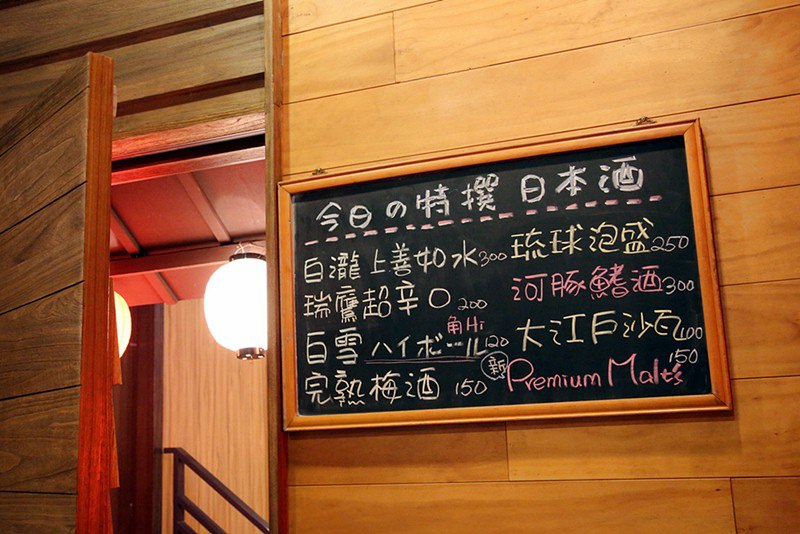 今日の特撰 日本酒
白瀧上善如水300
瑞鷹超辛口200
白雪ハイボール120
角Hi
完熟梅酒 150
琉球泡盛250
河豚鰭酒300
大江戸沙瓦100
新Premium Malt's 150